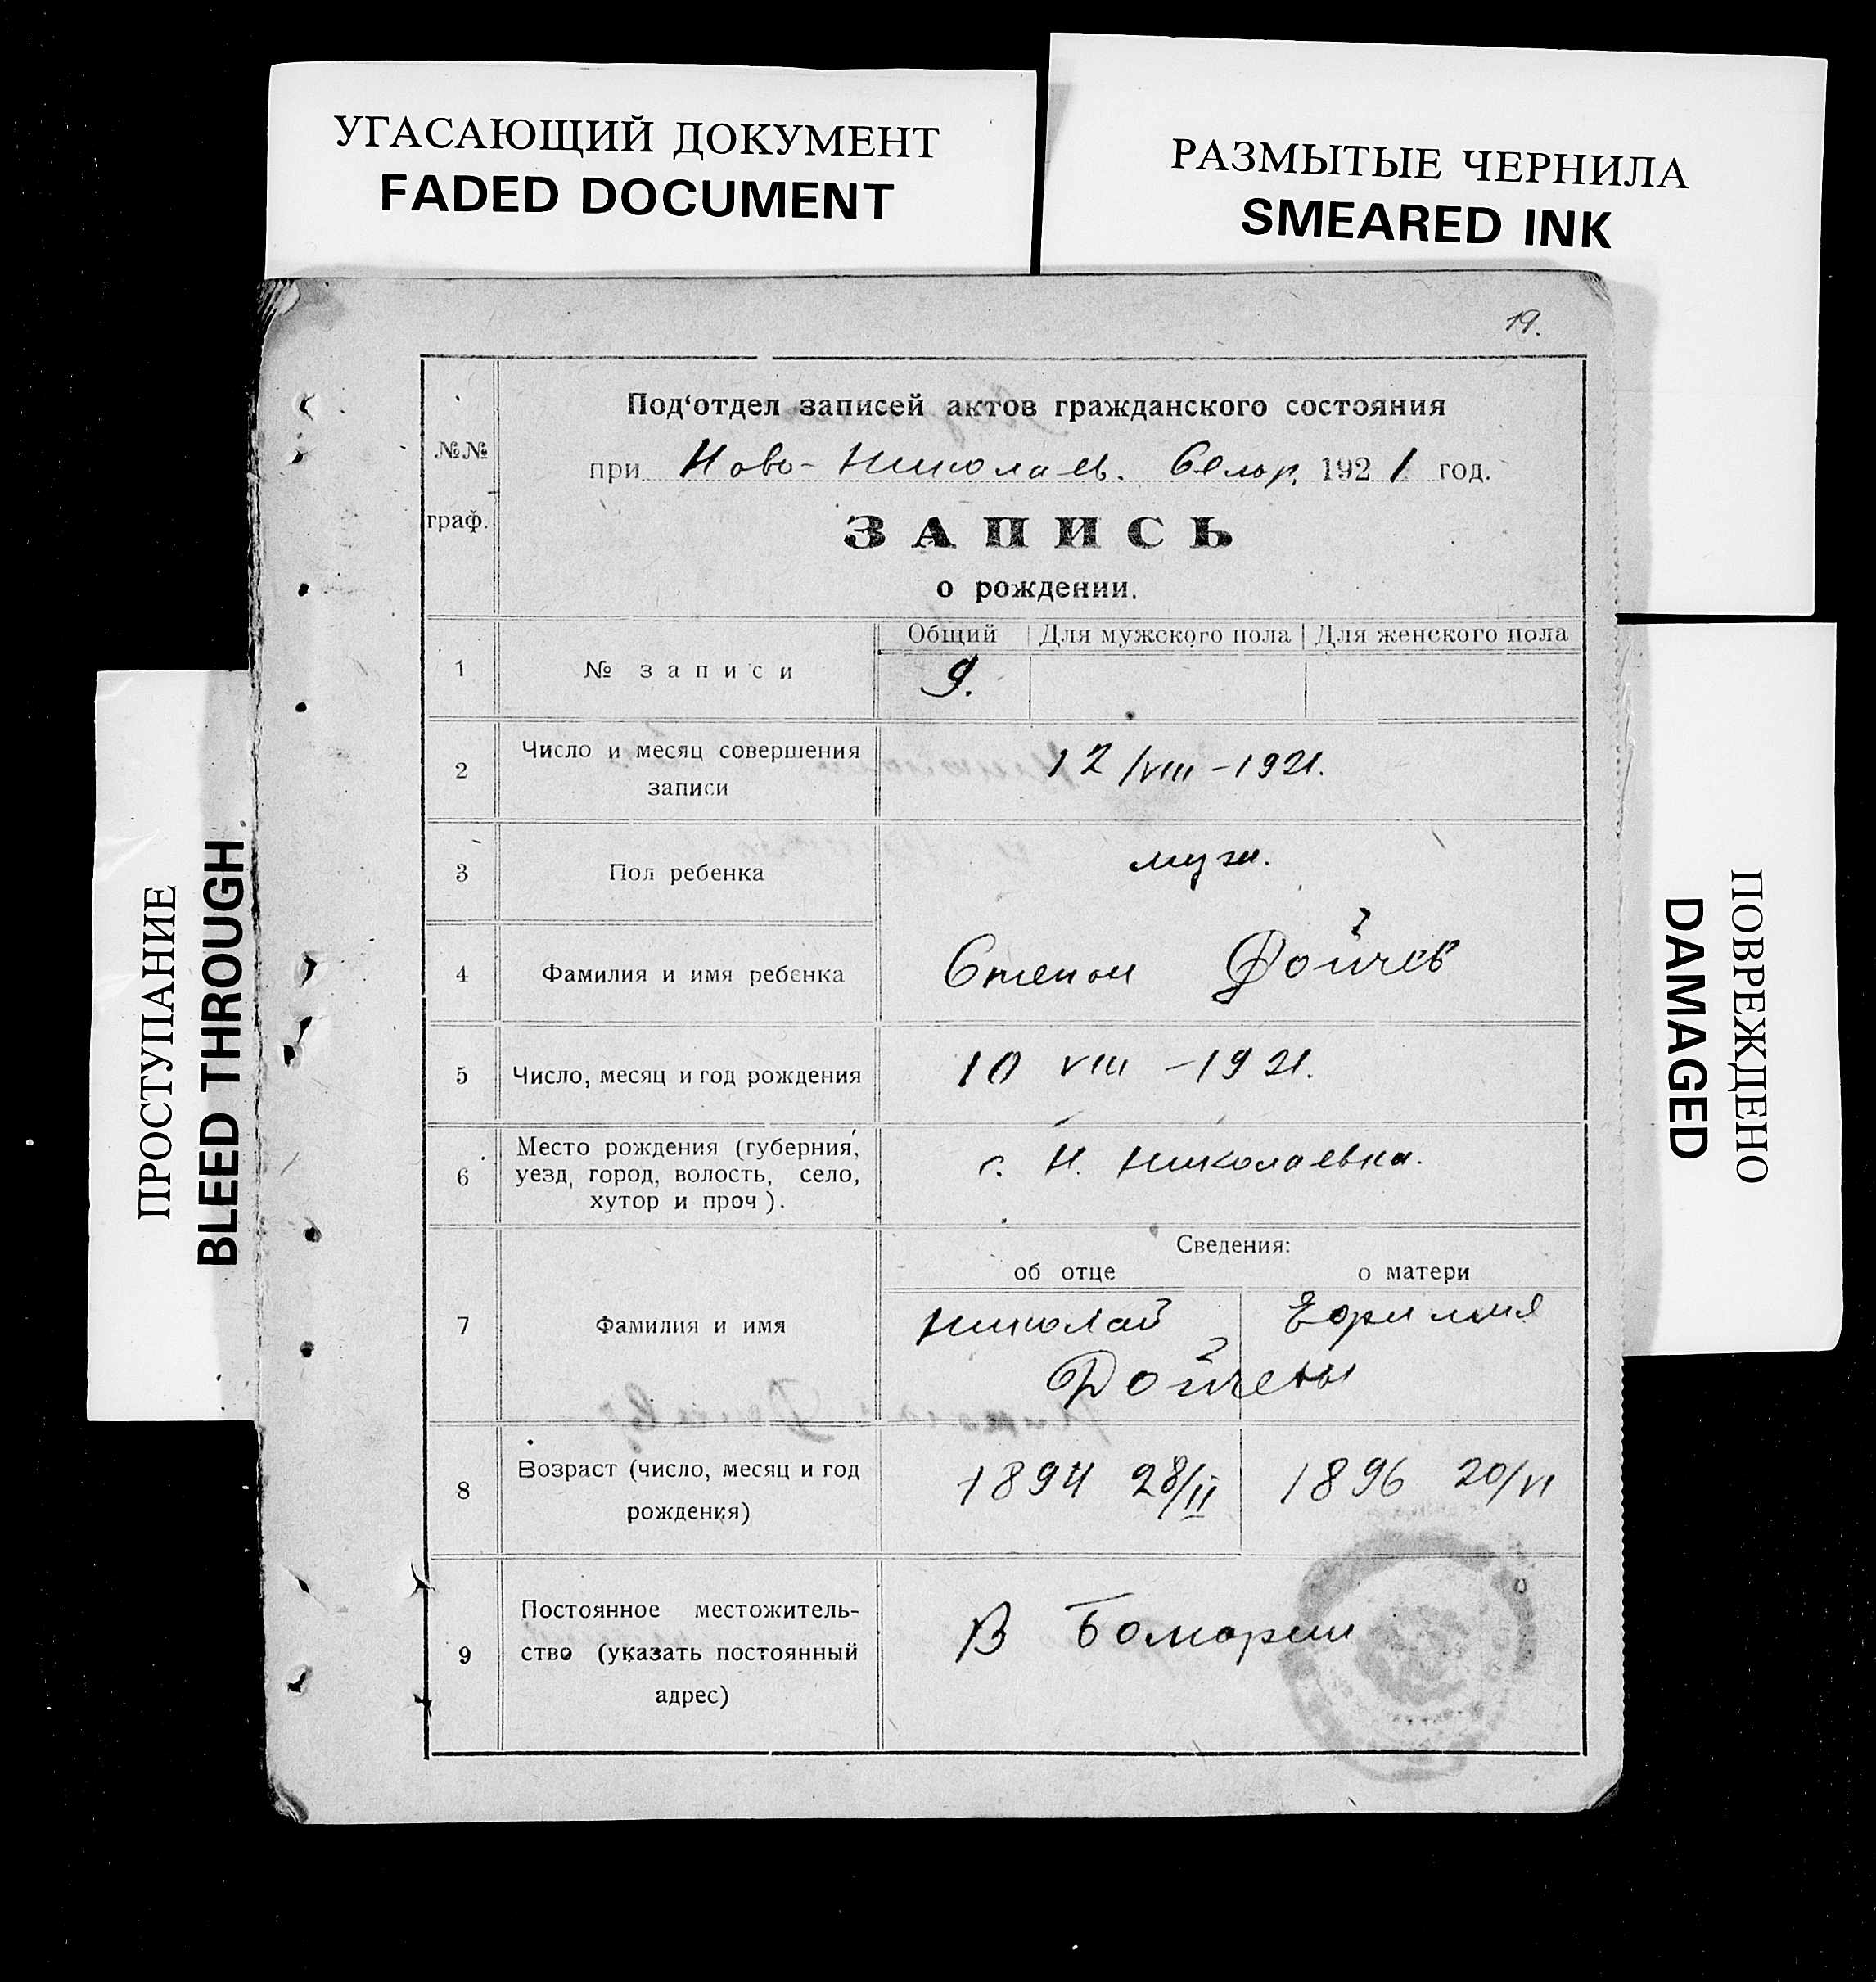 УГАСАЮЩИЙ ДОКУМЕНТ
FADED DOCUMENT
РАЗМЫТЫЕ ЧЕРНИЛА
SMEARED INK
ПРОСТУПАНИЕ
BLEED THROUGH
ПОВРЕЖДЕНО
DAMAGED
19.
№№
граф.
Под‘отдел записей актов гражданского состояния
при Ново-Николаев. 1921 год.
ЗАПИСЬ
о рождении.
Общий Для мужского пола Для женского пола
1 № записи 9.
2 Число и месяц совершения
записи
12/VIII-1921.
3 Пол ребенка муж.
4 Фамилия и имя ребенка Степан Дойчев
5 Число, месяц и год рождения 10 VIII -1921.
6 Место рождения (губерния,
уезд, город, волость, село,
хутор и проч).
с. Н. Николаевка.
Сведения:
об отце о матери
7 Фамилия и имя Николай Ефимия
Дойчевы
8 Возраст (число, месяц и год
рождения)
1894 28/II 1896 20/VI
9 Постоянное местожитель-
ство (указать постоянный
адрес)
В